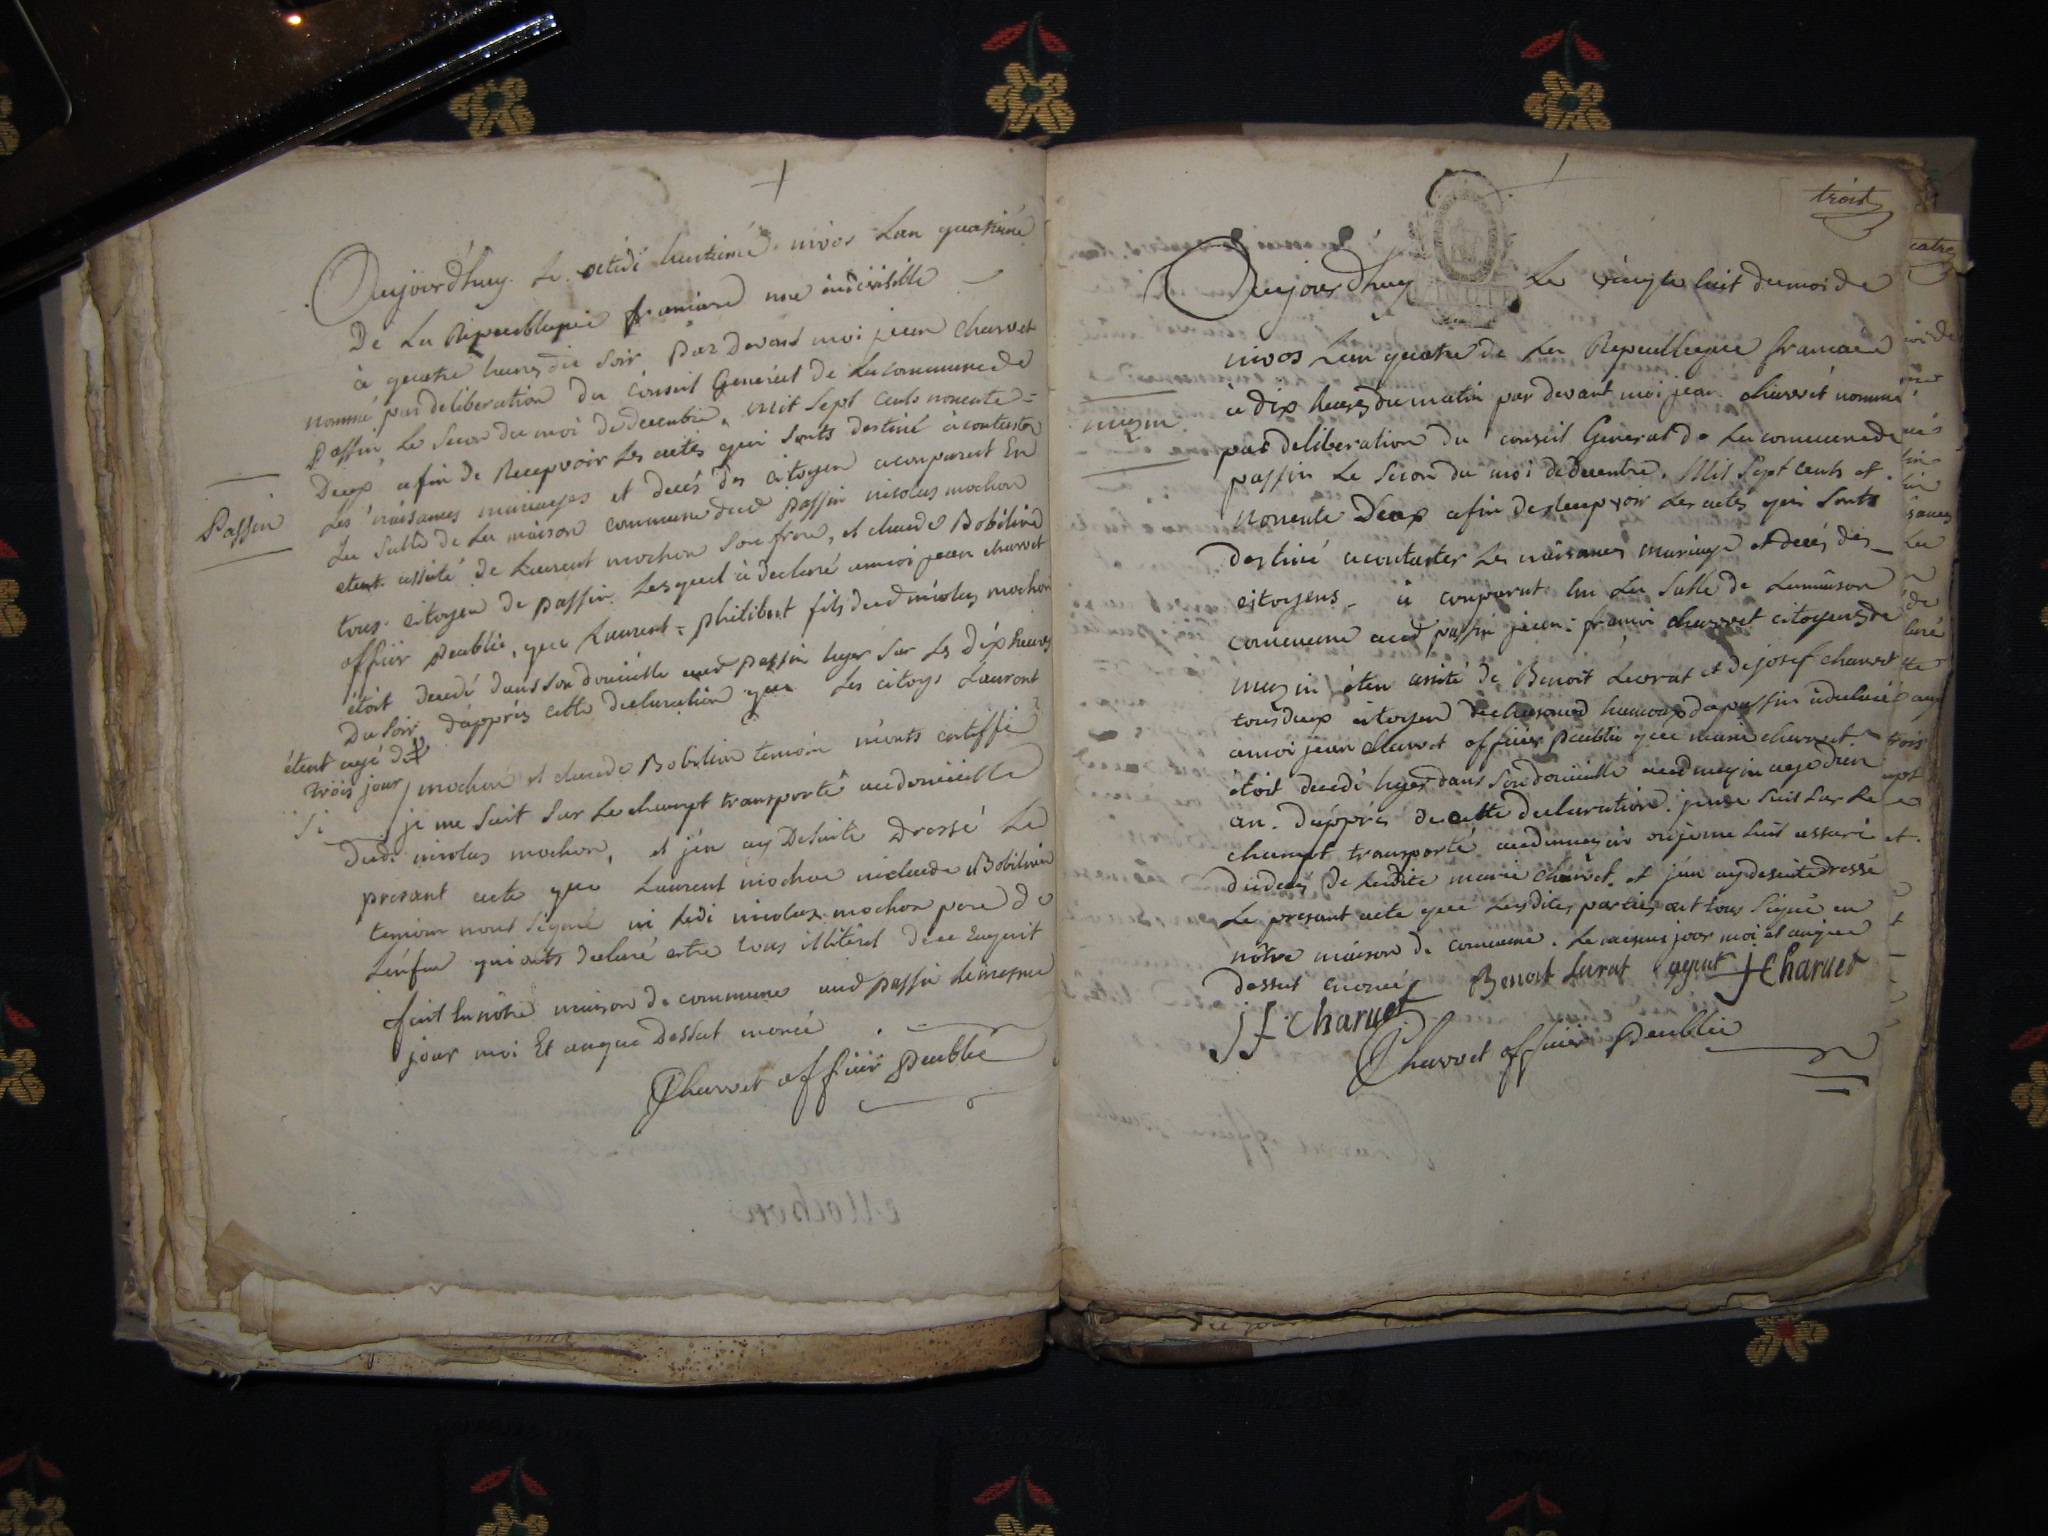 Aujourd'huy le octidi huitieme nivos l'an quatrieme
De La Republique francaise une indivisible
à quatre heures du soir par devant moi jean charvet
nommé par deliberation du Conseil General de La commune de
Passin le secon du moi de decembre, mil sept cents nonente=
Deux afin de Recepvoir les actes qui sonts destiné à contaster
Les naisances mariages et decés des citoyen a comparut En
La salle de La maison commune dud Passin nicolas mochon
etent assisté de Laurent mochon son frere, et claude Bobilion
tous citoyen de passin Lesquel à declaré a moi jean charvet
officier Peublic, que Laurent = philibert fils dud nicolas mochon
étoit decedé dans son domicille aud passin hyer sur les dix heures
Du soir, d'apprés cette declaration que les citoys Laurent
Passin
étent agé de
trois jour
mochon et claude Bobilion temoin m'onts certiffié
je me suit sur le champt transporté au domicille
Dudi nicolas mochon, et j'en ay Desuite Dressé Le
present acte que Laurent mochon ni claude Bobilion
temoin n'ont signé ni ledi nicolas mochon pere de
L'enfan qui onts declaré estre tous illiteré de ce Enquit
fait En nôtre maison de commune aud passin le mesme
jour moi Et anque Dessut enoncé
Charvet officier Peublic
trois
Aujourd'huy Le vingte huit du moi de
nivos L'an quatre de La Republique francaise
a dix heures du matin par devant moi jean charvet nommé
par deliberation du conseil General de La commune de
passin Le secon du moi de decembre. Mil sept cents et
nonente Deux afin de Recepvoir Les actes qui sonts
destiné a contaster les naisances mariage et decés des
citoyens à comparut En La Salle de La maison
commune aud passin jean francoi charvet citoyens de
meysin étens assisté de Benoit Leurat et de josef charvet
tous deux citoyen
a moi jean charvet officier Peublic que marie charvet
etoit decedé hyer dans son domicille aud meysin agé d'un
an. D'apprés de cette declaration. je me suit sur Le
champt transporté aud meysin ou je me suis assuré
du decés de Ladite marie charvet. et j'en ay desuite dressé
Le present acte que Lesdites parties ont tous signé en
nôtre maison de commune. Le mesme jour moi et anque
dessut enoncé Benoit Lurat agent J Charuet
j f charuet
Charvet officier Peublic
meysin